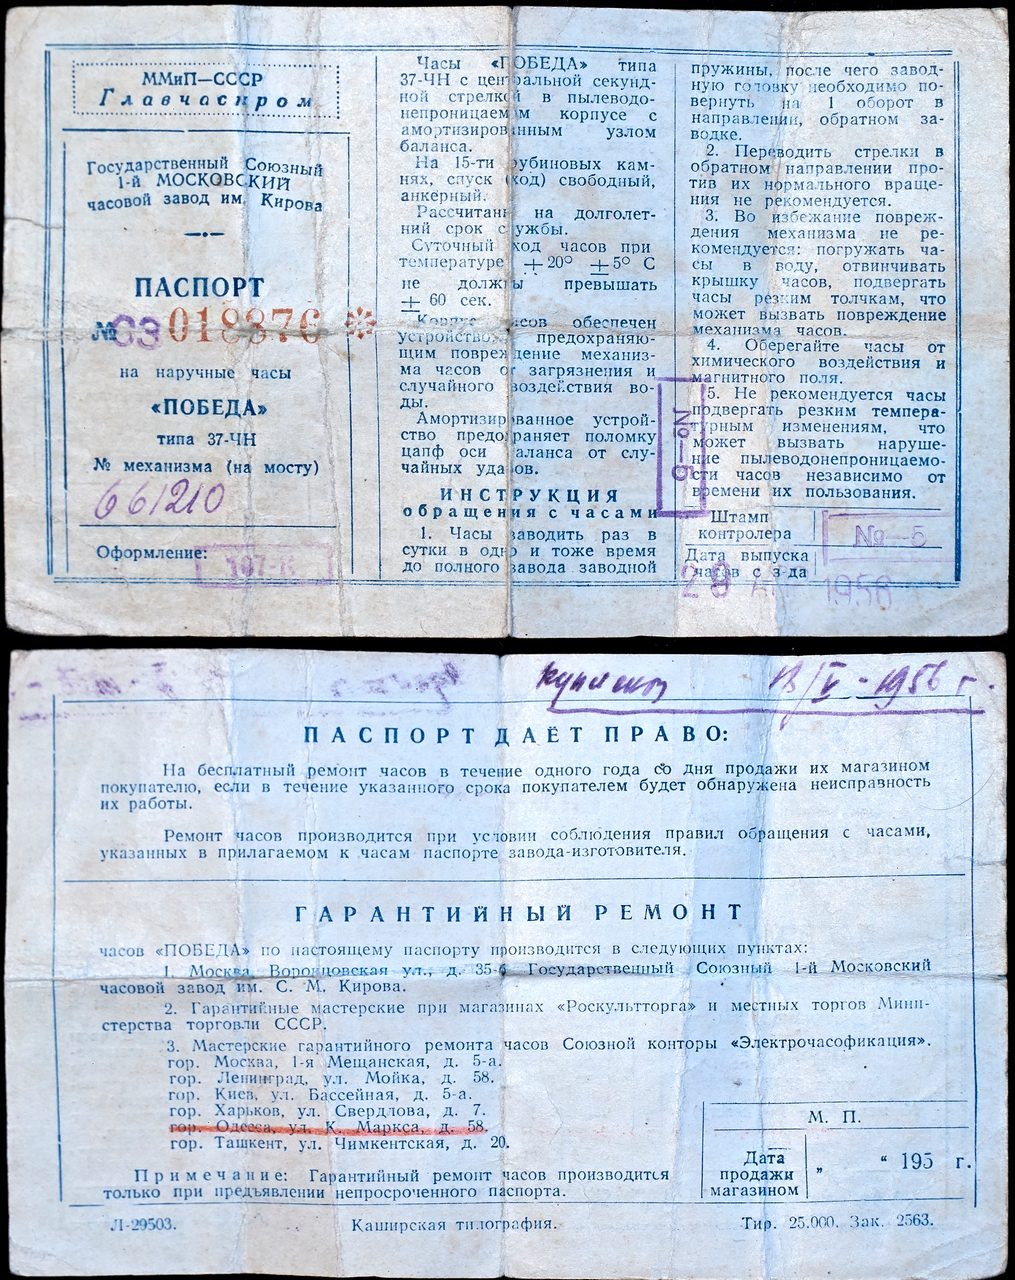 ММиП—СССР
Главчаспром
Государственный Союзный
1-й МОСКОВСКИЙ
часовой завод им. Кирова
ПАСПОРТ
№ 018376 *
на наручные часы
«ПОБЕДА»
типа 37-ЧН
№ механизма (на мосту)
661210
Оформление:
107-К
Часы «ПОБЕДА» типа
37-ЧН с центральной секунд-
ной стрелкой в пылеводо-
непроницаемом корпусе с
амортизированным узлом
баланса.
На 15-ти рубиновых кам-
нях, спуск (ход) свободный,
анкерный.
Рассчитаны на долголет-
ний срок службы.
Суточный ход часов при
температуре +20° ±5° С
не должны превышать
± 60 сек.
Корпус часов обеспечен
устройством, предохраняю-
щим повреждение механиз-
ма часов от загрязнения и
случайного воздействия во-
ды.
Амортизированное устрой-
ство предохраняет поломку
цапф оси баланса от слу-
чайных ударов.
ИНСТРУКЦИЯ
обращения с часами
1. Часы заводить раз в
сутки в одно и тоже время
до полного завода заводной
пружины, после чего завод-
ную головку необходимо по-
вернуть на 1 оборот в
направлении, обратном за-
водке.
2. Переводить стрелки в
обратном направлении про-
тив их нормального враще-
ния не рекомендуется.
3. Во избежание повреж-
дения механизма не ре-
комендуется: погружать ча-
сы в воду, отвинчивать
крышку часов, подвергать
часы резким толчкам, что
может вызвать повреждение
механизма часов.
4. Оберегайте часы от
химического воздействия и
магнитного поля.
5. Не рекомендуется часы
подвергать резким темпера-
турным изменениям, что
может вызвать наруше-
ние пылеводонепроницаемо-
сти часов независимо от
времени их пользования.
Штамп
контролера
№—5
Дата выпуска
часов с з-да
29 АПР 1956
куплены 13/V-1956 г.
ПАСПОРТ ДАЁТ ПРАВО:
На бесплатный ремонт часов в течение одного года со дня продажи их магазином
покупателю, если в течение указанного срока покупателем будет обнаружена неисправность
их работы.
Ремонт часов производится при условии соблюдения правил обращения с часами,
указанных в прилагаемом к часам паспорте завода-изготовителя.
ГАРАНТИЙНЫЙ РЕМОНТ
часов «ПОБЕДА» по настоящему паспорту производится в следующих пунктах:
1. Москва, Воронцовская ул., д. 35-б Государственный Союзный 1-й Московский
часовой завод им. С. М. Кирова.
2. Гарантийные мастерские при магазинах «Роскультторга» и местных торгов Мини-
стерства торговли СССР.
3. Мастерские гарантийного ремонта часов Союзной конторы «Электрочасофикация».
гор. Москва, 1-я Мещанская, д. 5-а.
гор. Ленинград, ул. Мойка, д. 58.
гор. Киев, ул. Бассейная, д. 5-а.
гор. Харьков, ул. Свердлова, д. 7.
гор. Одесса, ул. К. Маркса, д. 58.
гор. Ташкент, ул. Чимкентская, д. 20.
Примечание: Гарантийный ремонт часов производится
только при предъявлении непросроченного паспорта.
М. П.
Дата
продажи
магазином
„ “ 195 г.
Л-29503.
Каширская типография.
Тир. 25.000. Зак. 2563.